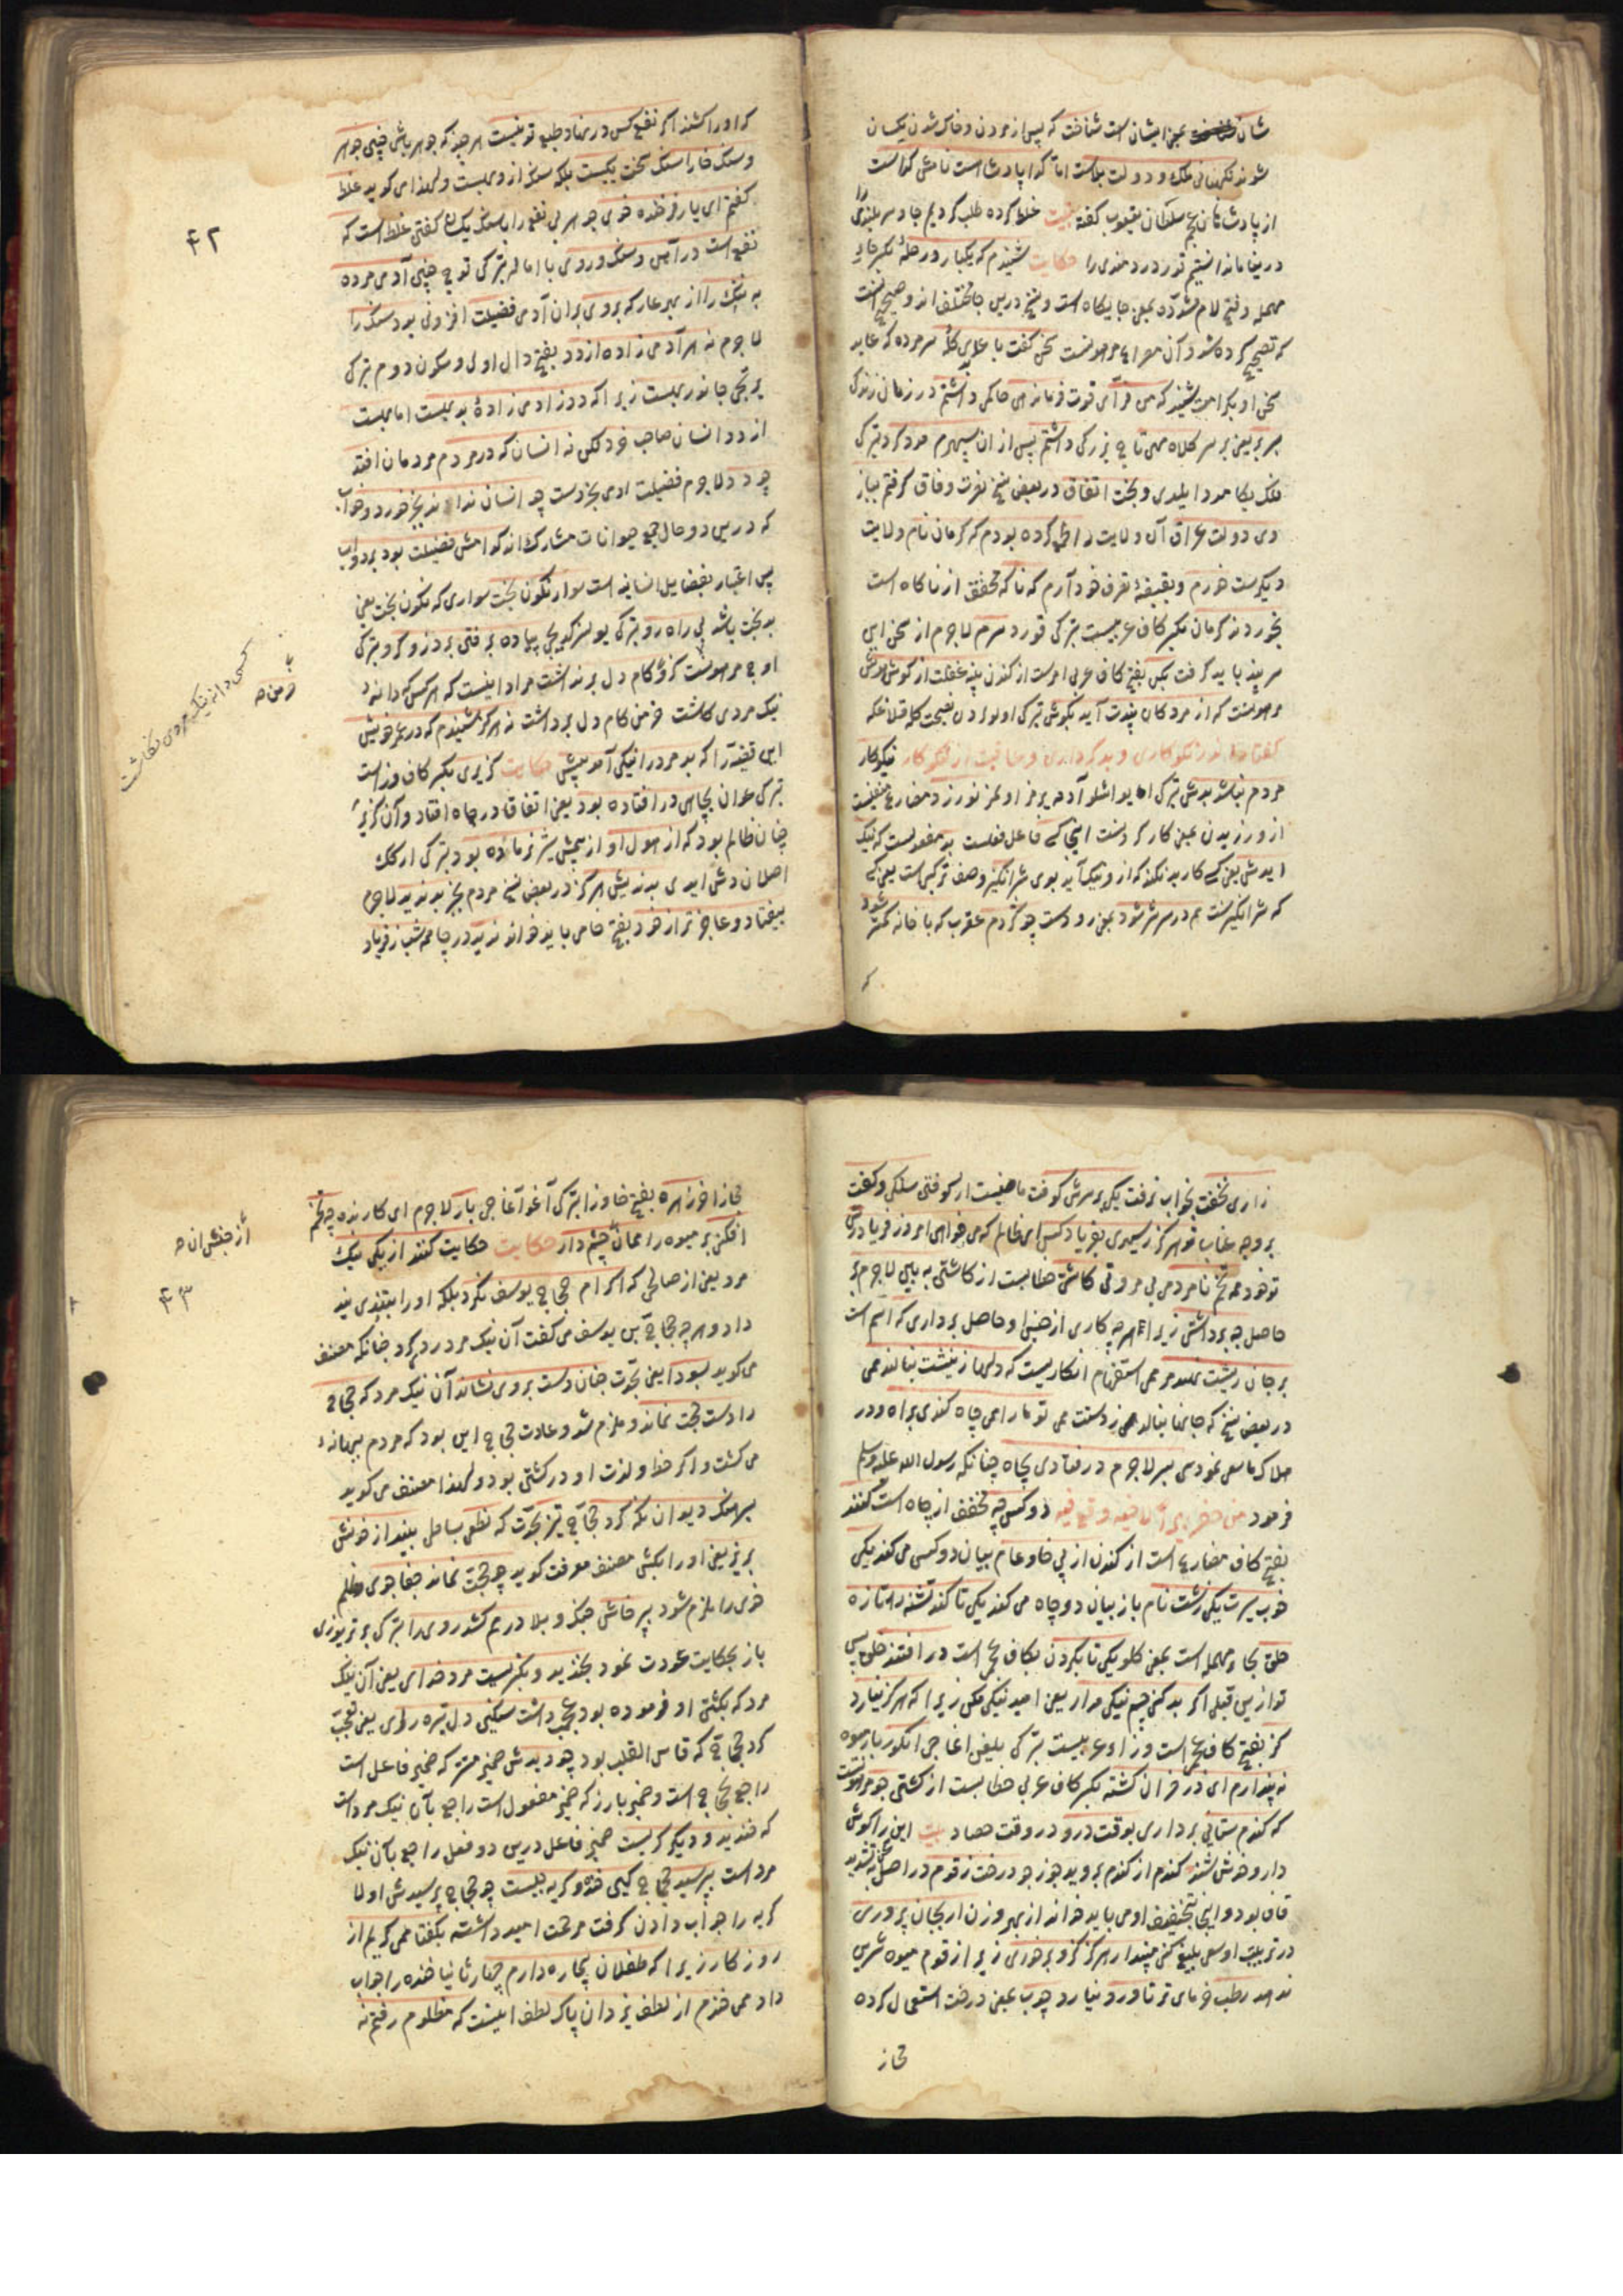 شان عجز ایشان است شناخت که پس از مردن و خاک شدن یکسان
شوند نکهبانی ملک و دولت بلاست اما کدا پادشاست نامش کداست
از پادشاهان عجم سلطان یعقوب کفته بیت غلط کرده طلب کردیم جاه و سر بلندی را
دریغا ما ندانستیم قدر دردمندی را حکایت شنیدم که یکبار در حله بکسر حاء
مهمله و فتح لام مشدّده بمعنی جایکاه است و نسخ درین جا مختلف اند و صحیح اینست
که تصحیح کرده شد و آن مصراع مرهونست سخن کفت با عابدی کله سر مرده که عابد
سخن او بکرامت شنید که من فرّ ای قوت فرماندهی حاکمی داشتم در زمان زندکی
بسر بر یعنی بر سر کلاه مهی تاج بزرکی داشتم پس از ان سپهرم مدد کرد بترکی
فلک بکا مدد ایلدی و بخت اتفاق در بعض نسخ نصرت وفاق کرفتم ببازو
وی دولت عراق آن ولایت را طمع کرده بودم که کرمان نام ولایت
دیکرست خورم و بقبضهٔ تصرف خود آرم که ناکه مخفف از ناکاه است
بخوردند کرمان بکسر کاف عربیست بترکی قورد سرم لاجرم از سخن این
سر پند باید کرفت بکن بفتح کاف عربی امرست از کندن پنبه غفلت از کوش هوش
مرهونست که از مردکان پندت آید بکوش بترکی اولولردن نصیحت کله قلاغکه
کفتار اندر نکوکاری و بدکرداری و عاقبت ایشان نکوکار نیکوکار
مردم نباشد بدش بترکی ایو ایشلو آدمه یرمز اولمز نورزد مضارع منفیست
از ورزیدن بمعنی کار کردنست اینجا کسی فاعل فعلست بد مفعولست که نیک
ایدش یعنی کسی کار بد نکند که از و نیک آید بوی شر انکیز وصف ترکیبی است یعنی کسی
که شر انکیزست هم در سر شر شود بمعنی رودست چو کژدم عقرب که با خانه کمتر شود
که
کر او را کشند اکر نفع کس در نهاد و طبع تو نیست هر چیز که جوهر باش چنین جوهر
و سنک خارا سنک سخت یکیست بلکه سنک از و بهست و لهذا می کوید غلط
کفتم ای یار فرخنده خوی جوهر بی نفع را با سنک یکسان کفتن غلط است که
نفع است در آهن و سنک و روی با اماله بترکی توج چنین آدمی مرده
به ننک را از بهر عار که بروی بر ان آدمی فضیلت افزونی بود سنک را
لاجرم نه هر آدمی زاده از دد بفتح دال اولی و سکون دوم بترکی
یرتجی جانور بهست زیرا که دد ز ادمی زادهٔ بد بهست اما بهست
از دد انسان صاحب خرد لکن نه انسان که در مردم مردمان افتد
چو دد لاجرم فضیلت ادمی بخردست چو انسان نداند بجز خورد و خواب
که درین دو حال جمیع حیوانات مشارک اند کدامش فضیلت بود بر دواب
پس اعتبار بفضایل انسانیه است سوار نکون بخت سواری که نکون بخت یعنی
بدبخت باشد بی راه رو بترکی یولسز کدیجی پیاده بر فتن برد زو کرو بترکی
او ج مرهونست کزو کام دل برنداشت مراد اینست که هر کس که دانه
نیک مردی کاشت خرمن کام دل برداشت نه هرکز شنیدم که در عمر خویش
این قضیّه را که بد مرد را نیکی آمد بپیش حکایت کزیری بکسر کاف وزاست
بترکی عوان بچاهی در افتاده بود یعنی اتفاقا در چاه افتاد و آن کزیر
چنان ظالم بود که از هول او از بیمش شیر نر ماده بود بترکی ارکک
اصلان دیشی ایدی بداندیش هرکز در بعض نسخ مردم بجز بد ندید لاجرم
بیفتاد و عاجز تر از خود بفتح خا می باید خواند ندید در چاه همه شب ز فریاد
۴۲
خرمن صح
کسی دانه نیک مردی نکاشت
زاری نخفت بخواب نرفت یکی بر سرش کوفت ماضیست از کوفتن سنکی و کفت
بر وجه عتاب تو هرکز رسیدی بفریاد کس ای ظالم که می خواهی امروز فریاد رس
تو خود همه تخم نامردمی بی مروتی کاشتی خطابست از کاشتن به بین لاجرم بر
حاصل چه برداشتی زیرا هرچه کاری از جنس او حاصل برداری که اسم است
بر جان ریشت نهد مرهمی استفهام انکاریست که دلها ز نیشت بنالند همی
در بعض نسخ که جانها بنالد همی ز دستت همی تو ما را همی چاه کندی براه و در
هلاک ما سعی نمودی بسر لاجرم در فتادی بچاه چنانکه رسول الله علیه وسلم
فرمود من حفر بئرا لاخیه وقع فیه دو کس چه مخفف از چاه است کنند
بفتح کاف مضارع است از کندن از پی خاص و عام بیان دو کس می کند یکی
خوب سیرت یکی زشت نام باز بیان دو چاه می کند یکی تا کند تشنه را تازه
حلق بحاء مهمله است بمعنی کلو یکی تا بکردن بکاف عجم است در افتند خلق پس
تو ازین قبیل اکر بد کنی چشم نیکی مدار یعنی امید نیکی مکن زیرا که هرکز نیارد
کز بفتح کاف عجم است و زاء عربیست بترکی یلغین اغاجی انکور بار میوه
نه پندارم ای در خزان کشته بکسر کاف عربی خطابست از کشتن جو مرهونست
که کندم ستانی برداری بوقت درو در وقت حصاد بیت این را کوش
دار و خوش شنو کندم از کندم بروید جو ز جو درخت زقوم در اصل بتشدید
قاف بود و اینجا بتخفیف او می باید خواند از بهر وزن ار بجان پروری
در تربیت او سعی بلیغ کنی مپندار هرکز کزو بر خوری زیرا ز قوم میوه شیرین
ندهد رطب خرمای تر ناورد نیارد چوب بمعنی درخت استعمال کرده
مجاز
مجازا خرزهره بفتح خا و زا بترکی آغو آغاجی بار لاجرم ای کارنده چه تخم
افکنی بر میوه را همان چشم دار حکایت حکایت کنند از یکی نیک
مرد یعنی از صالحی که اکرام حجاج یوسف نکرد بلکه او را بتندی پند
داد و هرچه حجاج بن یوسف می کفت آن نیک مرد رد می کرد چنانکه مصنف
می کوید بسودا یعنی بحجت چنان دست بروی نشاند آن نیک مرد که حجاج
را دست حجت نماند و ملزم شد و عادت حجاج این بود که مردم ببهانه
می کشت و اکثر حظ و لذت او در کشتن بود و لهذا مصنف می کوید
بسرهنک دیوان نکه کرد حجاج تیز بحدّت که نطعی بساحل بینداز خونش
بریز یعنی او را بکش مصنف معرفت کوید چو حجت نماند جفا جوی ظلم
خوی را ملزم شود بپرخاش جنک و بلا در هم کشد روی را بترکی بر تریوزی
باز بحکایت عودت نمود بخندید و بکریست مرد خدای یعنی آن نیک
مرد که بکشتن او فرموده بود عجب داشت سنکین دل تیره رای یعنی تعجب
کرد حجاج که قاسی القلب بود چو دیدش ضمیر مستتر که ضمیر فاعل است
راجع بحجاج است و ضمیر بارز که ضمیر مفعول است راجع بآن نیک مرد است
که خندید و دیکر کریست ضمیر فاعل درین دو فعل راجع بآن نیک
مرد است بپرسید حجاج کین خنده و کریه چیست چو حجاج پرسیدش اولا
کریه را جواب دادن کرفت مرحمت امید داشته بکفتا همی کریم از
روزکار زیرا که طفلان بیچاره دارم چهار ثانیا خنده را جواب
داد همی خندم از لطف یزدان پاک لطف اینست که مظلوم رفتم نه
از جنبش ان صح
۴۳